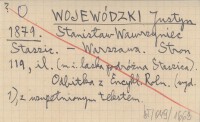 WOJEWÓDZKI Justyn
1879. Stanisław Wawrzyniec
Staszic. – Warszawa. Stron
119, il. (m.i. laska podróżna Staszica).
Odbitka z Encykl. Roln. (wyd.
1), z uzupełnionym tekstem